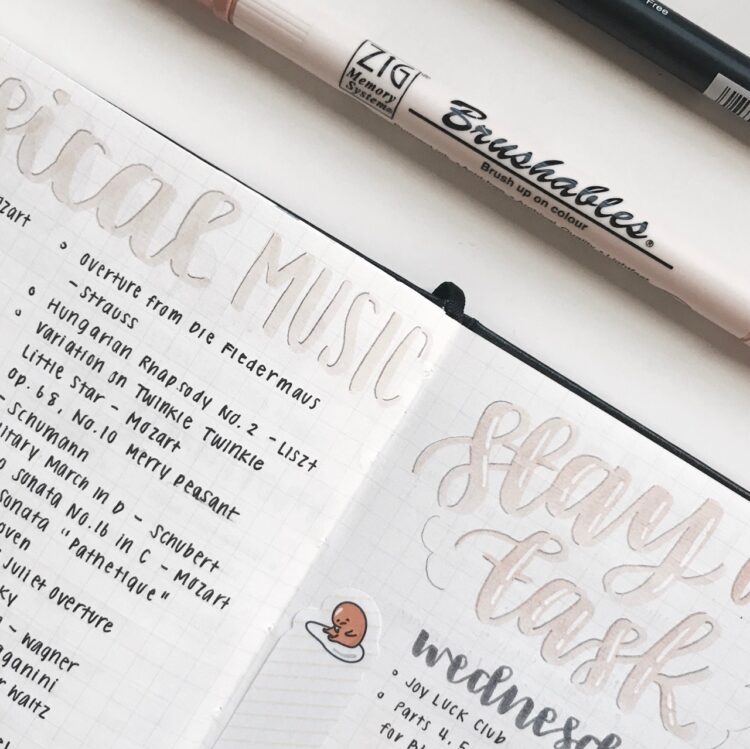 Free
ZIG
Memory
Systems
Brushables®
Brush up on colour
MUSIC
overture from Die Fledermaus
- Strauss
Hungarian Rhapsody No. 2 - Liszt
variation on Twinkle Twinkle
Little Star - Mozart
op. 68, No. 10 Merry Peasant
- Schumann
March in D - Schubert
Sonata No. 16 in C - Mozart
Sonata "Pathetique"
Juliet overture
- Wagner
Waltz
stay
task
wednesd
Joy Luck Club
Parts 4, 5
for